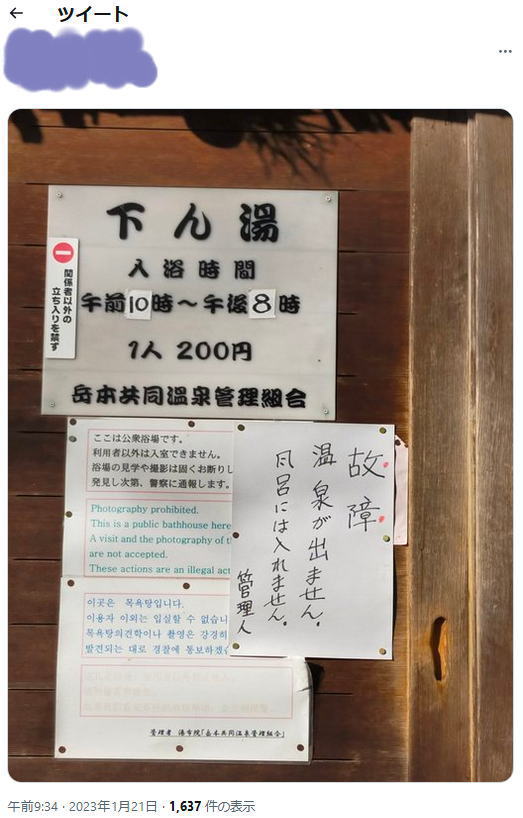 ツイート
下ん湯
入浴時間
午前10時～午後8時
1人 200円
岳本共同温泉管理組合
関係者以外の
立ち入りを禁ず
ここは公衆浴場です。
利用者以外は入室できません。
浴場の見学や撮影は固くお断りし
発見し次第、警察に通報します。
Photography prohibited.
This is a public bathhouse here
A visit and the photography of t
are not accepted.
These actions are an illegal act
이곳은 목욕탕입니다.
이용자 이외는 입실할 수 없습니
목욕탕의견학이나 촬영은 강경히
발견되는 대로 경찰에 통보하겠습
管理者 湯布院「岳本共同温泉管理組合」
故障
温泉が出ません。
風呂には入れません。
管理人
午前9:34 · 2023年1月21日 · 1,637 件の表示